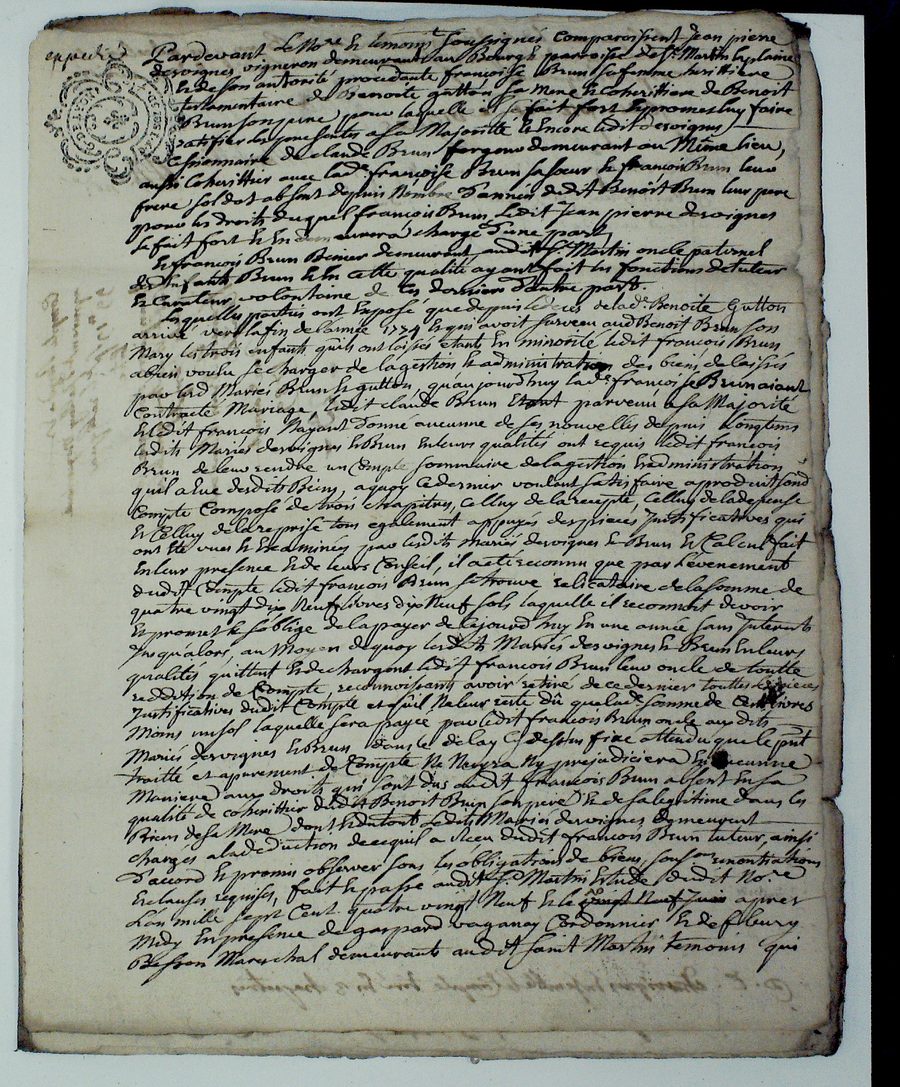 expedié
Pardevant le Nore Et temoins soussignés Comparoissent Jean pierre
desvignes vigneron demeurant au Bourg Et paroisse de St Martin la plaine
Et de son autorité procedante françoise Brun sa femme heritiere
testamentaire de Benoite gutton sa Mere Et Coheritiere de Benoit
Brun son pere pour laquelle il se fait fort Et promes luy faire
ratifier les presentes a sa Majorité Et Encore ledit desvignes
Cessionnaire de claude Brun forgeur demeurant au Même lieu,
aussi Coherittier avec lade françoise Brun sa soeur Et françois Brun leur
frere soldat absent depuis Nombre d'années dudit Benoit Brun leur pere
pour les droits duquel françois Brun Ledit Jean pierre desvignes
se fait fort Et En demeurera chargé d'une part
Et françois Brun demeurant audit St Martin oncle paternel
des Enfants Brun Et En Cette qualité ayant fait les fonctions de tuteur
Et Curateur volontaire de Ces derniers d'autre part.
Lesquelles parties ont Exposé que depuis le deces de lade Benoite Gutton
arrivé vers la fin de l'année 1774 Et qui avoit survecu audt Benoit Brun son
Mary les trois enfants qu'ils ont laissés etants En minorité ledit françois Brun
a bien voulu se charger de la gestion Et administration des biens delaissés
par lesd Mariés Brun Et gutton, qu'aujourd'huy lade françoise Brun aiant
Contracté Mariage, ledit claude Brun Etant parvenu a sa Majorité
Et ledit françois N'ayant donné aucunne de ses nouvelles depuis Longtems
lesdits Mariés desvignes Et Brun En leurs qualités ont requis ledit françois
Brun de leur rendre un Compte sommaire de la gestion Et administration
qu'il a Eue desdits Biens, a quoy Ce dernier voulant satisfaire a produit sond
Compte Composé de trois chapitres, Celluy de la recepte, Celluy de la depense
Et Celluy de la reprise tous egalement appuyés des pieces Justificatives qui
ont Eté vues Et Examinées par lesdits Mariés desvignes Et Brun Et Calcul fait
En leur presence Et de leurs Conseil, il a eté reconnu que par l'evenement
dudit Compte ledit françois Brun se trouve relicataire de la somme de
quatre vingt dix Neuf livres dix Neuf sols laquelle il reconnoit devoir
Et promet Et s'oblige de la payer de Ce jourd'huy En une année sans Interests
Jusqu'alors, au Moyen de quoy lesdits Mariés desvignes Et Brun En leurs
qualités quittent Et dechargent ledit françois Brun leur oncle de toutte
reddition de Compte, reconnoissants avoir retiré de Ce dernier touttes les pieces
Justificatives dudit Compte et qu'il Ne leur reste dû que lade somme de Cent livres
Moins un sol laquelle sera payée par ledit françois Brun oncle aux dits
Mariés desvignes Et Brun dans le delay Cy dessus fixé attendu que le pnt
traitté et apurement de Compte Ne Nuyra Ny prejudiciera En aucunne
Maniere aux droits qui sont dus audit françois Brun absent En sa
qualité de Coherittier dudit Benoit Brun son pere Et de sa legitime dans les
Biens de sa Mere dont Et du tout lesdits Mariés desvignes demeurent
chargés a la deduction de ce qu'il a Reçu dudit françois Brun tuteur, ainsi
d'accord Et promis observer sous les obligations de biens, soumissions renontiations
Et clauses requises, fait Et passé audit St Martin Etude dudit Nore
L'an mille sept Cent quatre vingt Neuf Et le vingt Neuf Juin apres
Midy En presence de gaspard vaganay Cordonnier Et de fleury
Besson Marechal demeurants audit saint Martin temoins qui